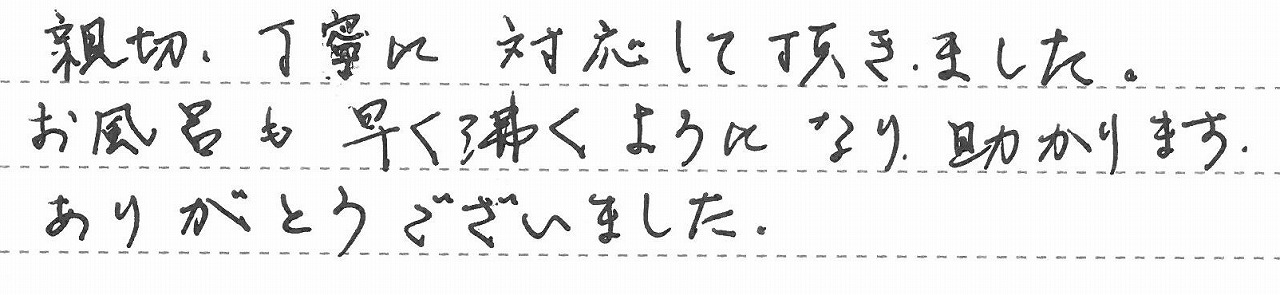 親切、丁寧に対応して頂きました。
お風呂も早く沸くようになり、助かります。
ありがとうございました。